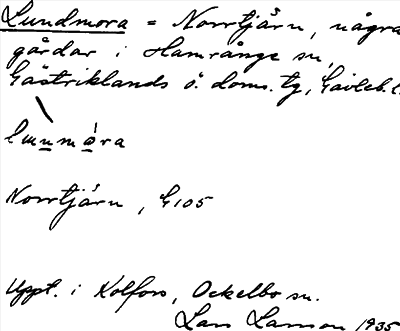 Lundmora = Norrtjärn, några
gårdar i Hamrånge sn,
Gästriklands ö. doms. tg, Gävleb. l.
Norrtjärn, G105
Uppt. i Kolfors, Ockelbo sn.
Lars Larsson 1935